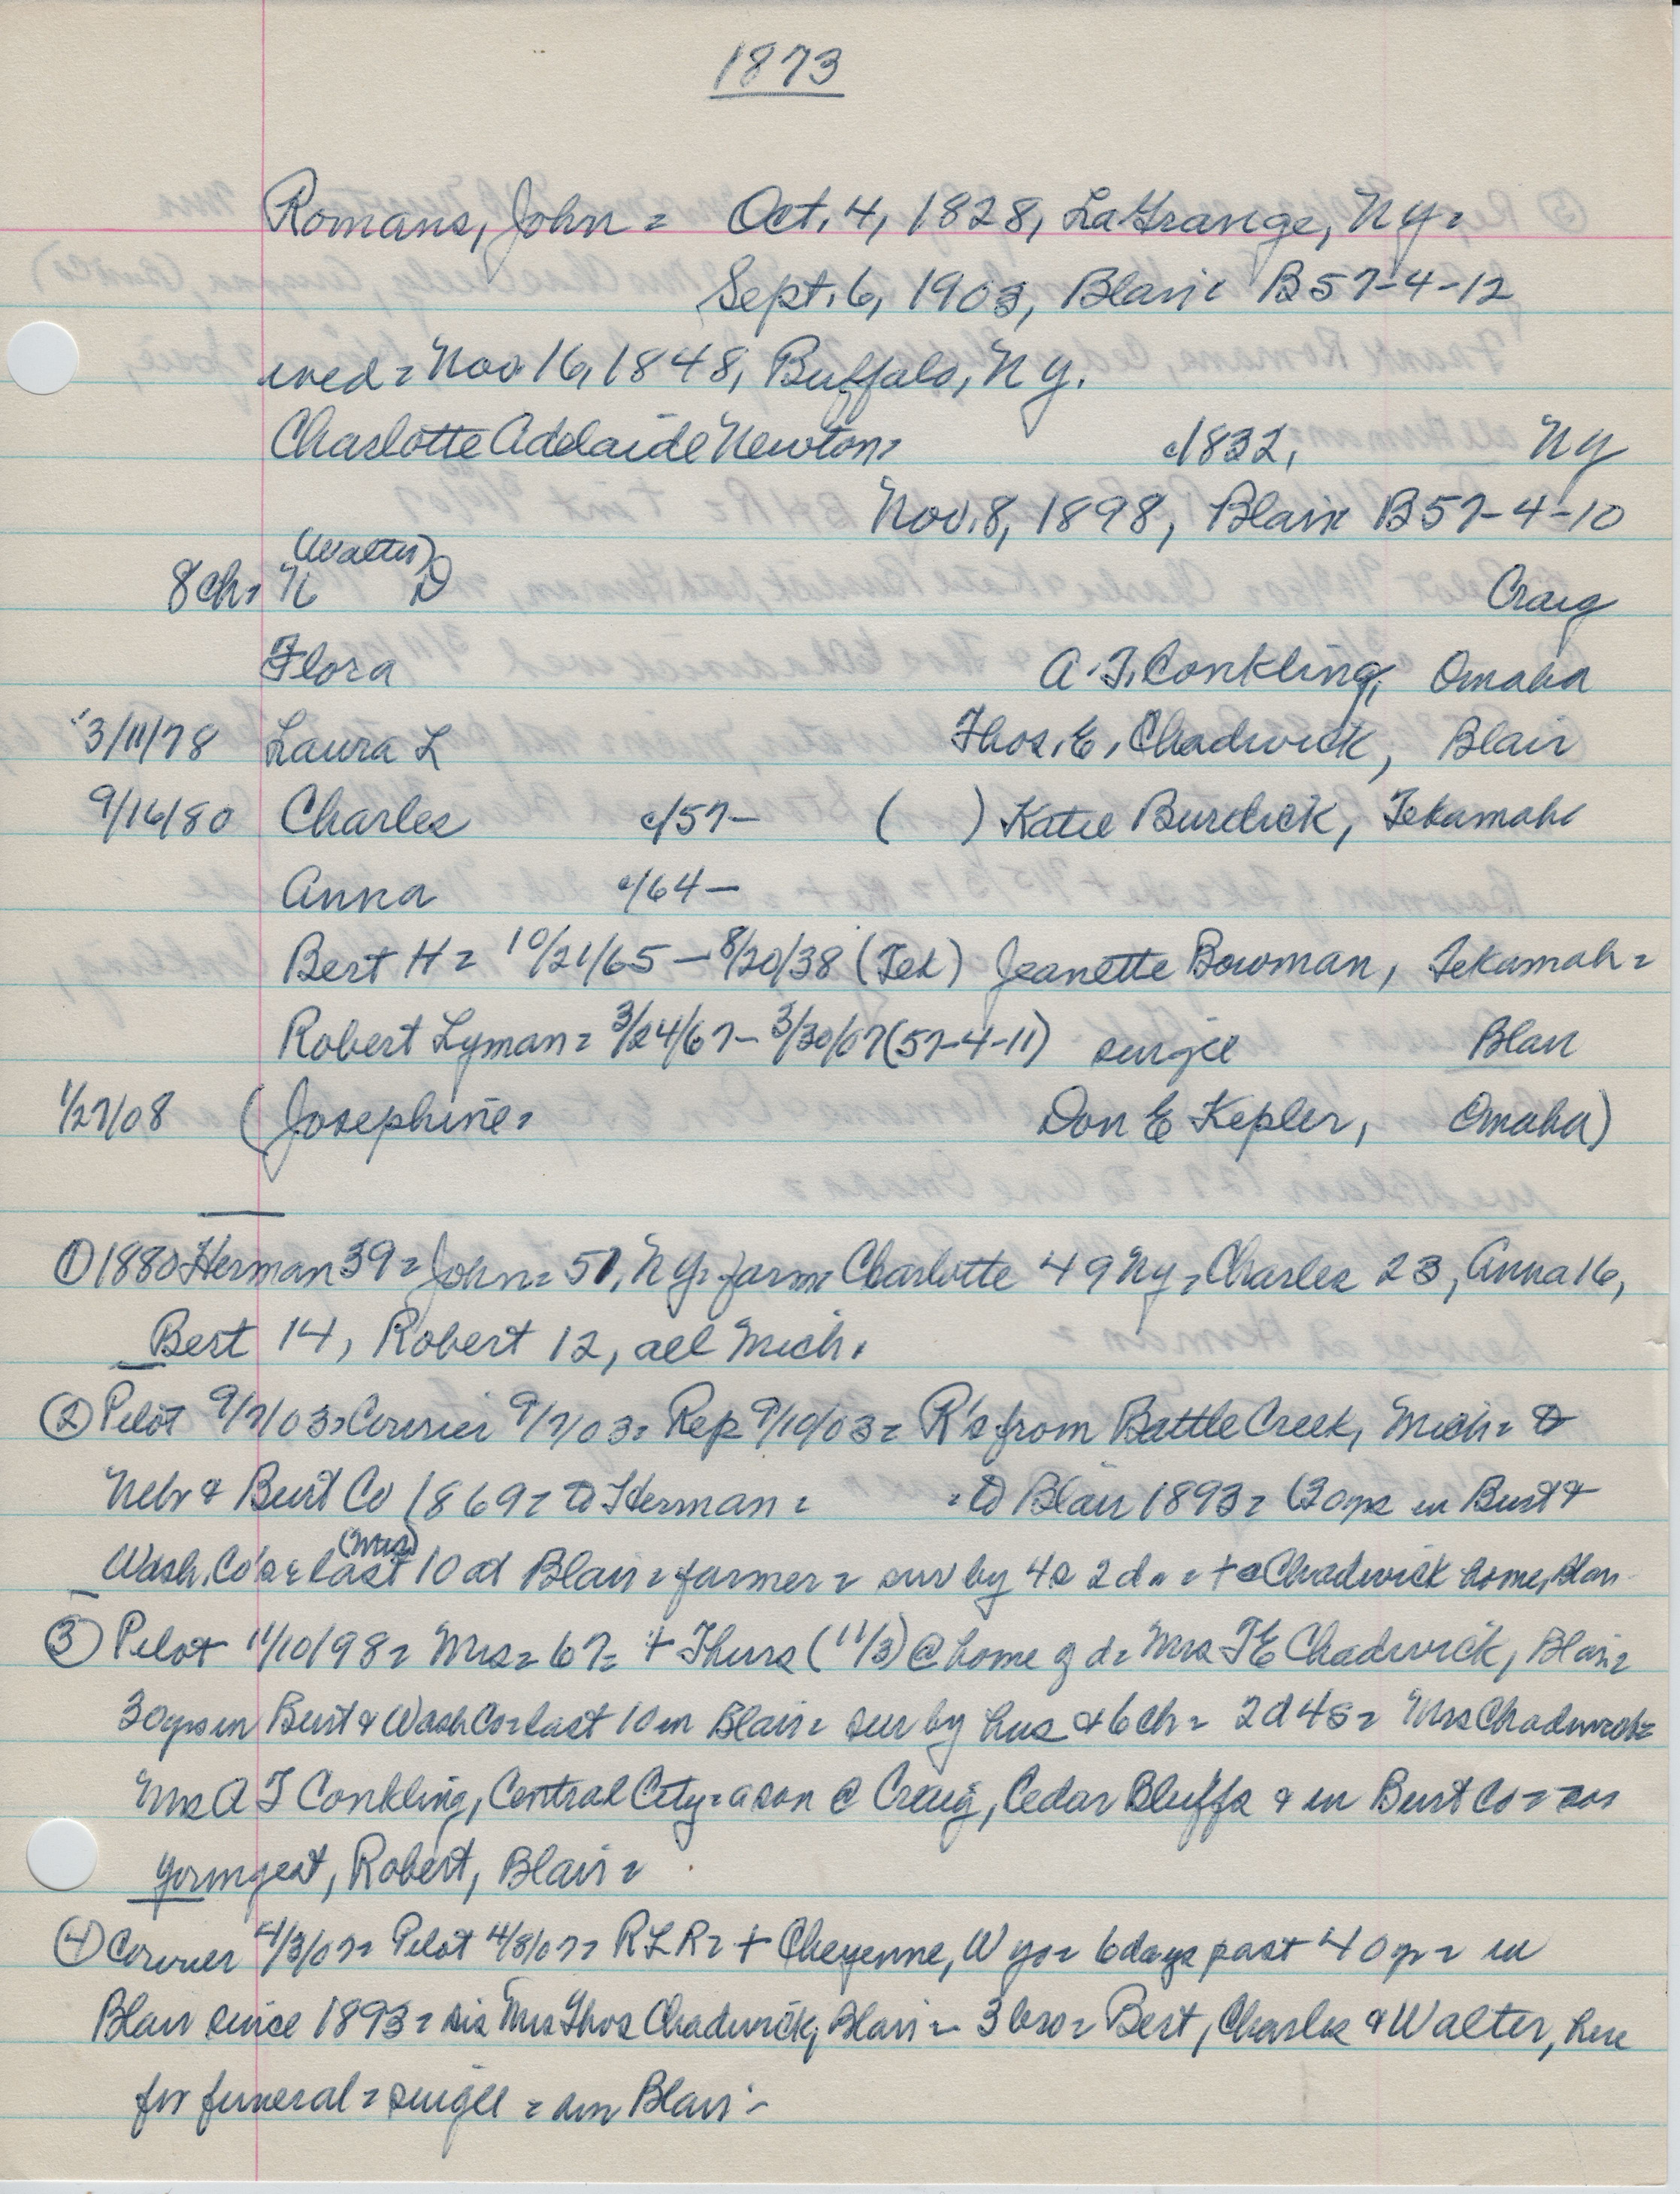 1873
Romans, John = Oct. 4, 1828, LaGrange, NY =
Sept. 6, 1903, Blair = B57-4-12
wed = Nov 16, 1848, Buffalo, NY.
Charlotte Adelaide Newton = c/1832, NY
Nov. 8, 1898, Blair = B57-4-10
(Walter)
8 ch = N D Craig
Flora A. T. Conkling, Omaha
3/11/78 Laura L Thos. E. Chadwick, Blair
9/16/80 Charles c/57- ( ) Katie Burdick, Tekamah
Anna c/64-
Bert H = 10/21/65 - 8/20/38 (Tek) Jeanette Bowman, Tekamah =
Robert Lyman = 3/24/67 - 3/30/07 (57-4-11) single Blair
1/27/08 (Josephine = Don E Kepler, Omaha)
① 1880 Herman 39 = John = 51, NY = farm = Charlotte 49 NY = Charles 23, Anna 16,
Bert 14, Robert 12, all Mich.
② Pilot 9/7/03 = Courier 9/7/03 = Rep 9/10/03 = R's from Battle Creek, Mich = to
Nebr & Burt Co 1869 = to Herman = = to Blair 1893 = (30 yrs in Burt &
(Mrs)
Wash. Co's = last 10 at Blair = farmer = sur by 4s 2d = + @ Chadwick home, Blair
③ Pilot 11/10/98 = Mrs = 67 = + Thurs (11/3) @ home of d = Mrs TE Chadwick, Blair =
30 yrs in Burt & Wash Co = last 10 in Blair = sur by hus & 6 ch = 2d 4s = Mrs Chadwick =
Mrs A T Conkling, Central City = a son @ Craig, Cedar Bluffs & in Burt Co =
youngest, Robert, Blair =
④ Courier 4/3/07 = Pilot 4/3/07 = RLR = + Cheyenne, Wyo = 6 days past 40 yr = in
Blair since 1893 = sis Mrs Thos Chadwick, Blair = 3 bro = Bert, Charles & Walter, here
for funeral = single = Blair -